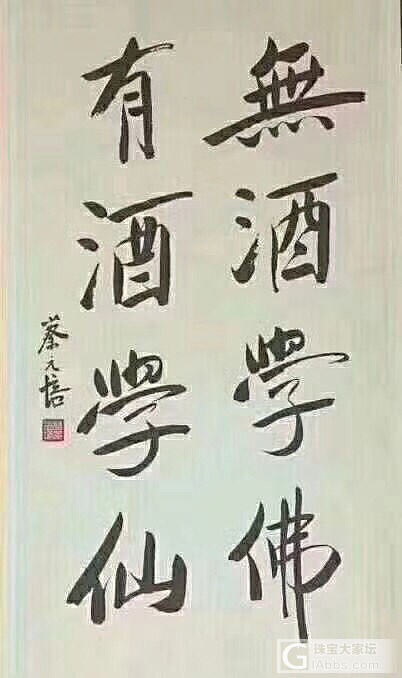 無酒學佛
有酒學仙
蔡元培
珠宝大家坛
GIAbss.com